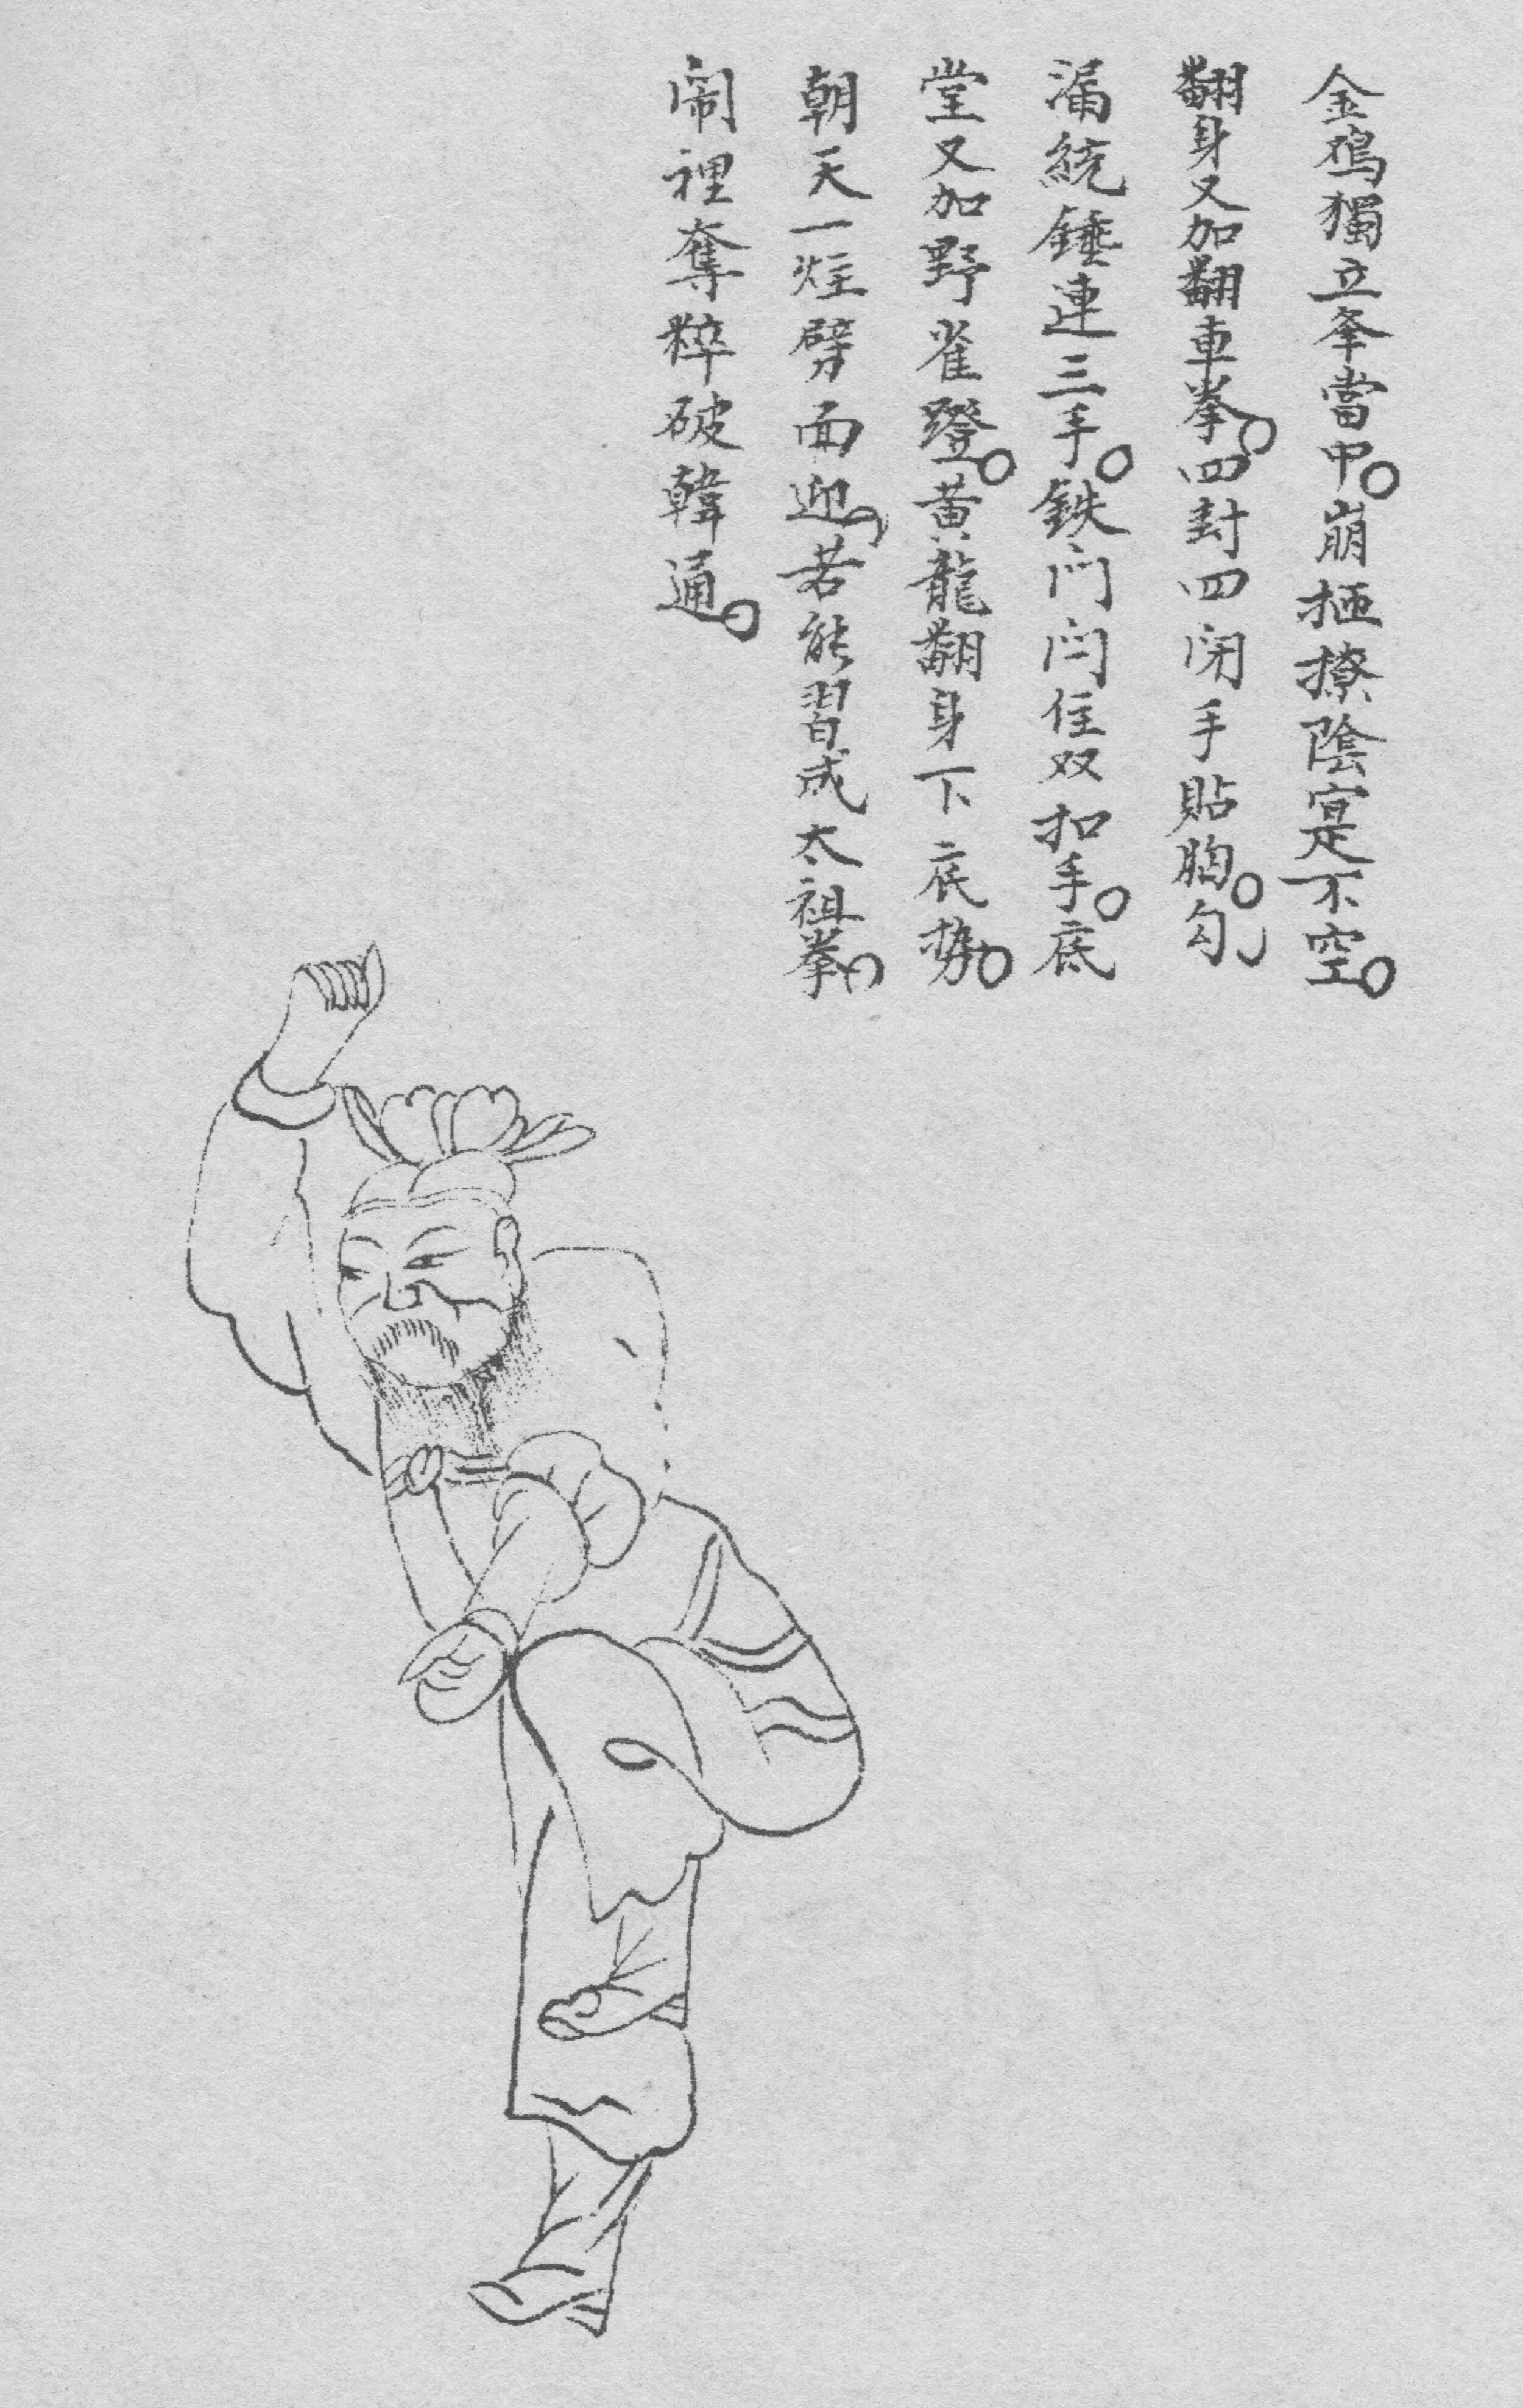 金鳮獨立夆當中。崩抷撩陰寔不空。
翻身又加翻車拳。四封四闭手貼胸。勾
漏統錘連三手。鉄门闩住双扣手。底
堂又加野雀蹬。黄龍翻身下底势。
朝天一炷劈面迎，若能習成太祖拳，
闹裡奪粹破韓通。